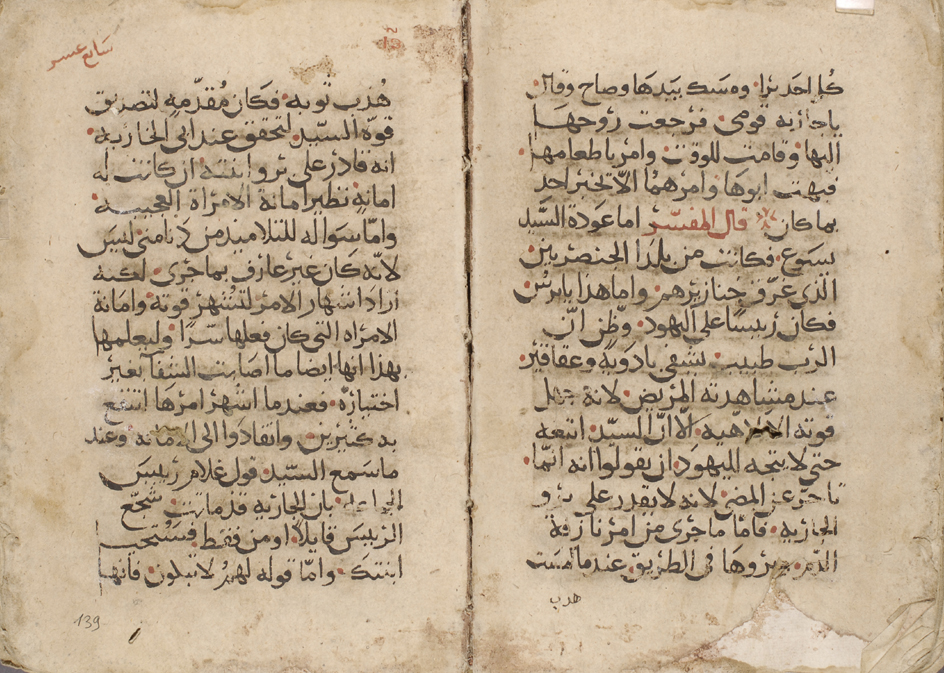 كل احد برا. ومسك بيدها وصاح وقال
يا جاريه قومى. فرجعت روحها
اليها وقامت للوقت. وامر باطعامها.
فبهت ابوها وامرهما الّا تخبر احد
بما كان قال المفسّر اما عودة السّيد
يسوع. فكانت من بلد الجنصريين
الذى غرّق خنازيرهم. واما هدا يايرس
فكان رييسًا على اليهود. وظن انّ
الرب طبيب. يشفى بادويه وعقاقير
عند مشاهدته المريض. لانه جهل
قوته الالاهيه. الّا انّ السيّد اتبعه
حتى لا يتجه لليهود. ان يقولوا انه انّما
تاخر عن المضى. لانه لا يقدر على برو
الجاريه. فامّا ما جرى من امر نازفة
الدّم. وبروها فى الطريق. عندما مست
هدب
سابع عشر
هُدب ثوبه. فكان مُقدّمه لتصديق
قوة السيّد. لتحقق عند ابى الجاريه.
انه قادر على برو ابنته. ان كانت له
امانه نظير امانة الامراة العجيبه.
وامّا سواله للتلاميد من دنا منى ليس
لانّه كان غير عارف بما جرى. لكنه
اراد اشهار الامر لتشهر قوته. وامانة
الامراه التى كان فعلها سرًا. وليعلمها
بهدا انها ايضا ما اصابت الشفآ بغير
اختباره. فعندما اشهر امرها انتفع
به كثيرين. وانقادوا الى الامانه. وعند
ما سمع السيّد. قول غلام رييس
الجماعه. بان الجاريه قد ماتت شجّع
الرييس قايلًا. اومن فقط. فستحيى
ابنتك. وامّا قوله لهم لا تبكون. فانها
139